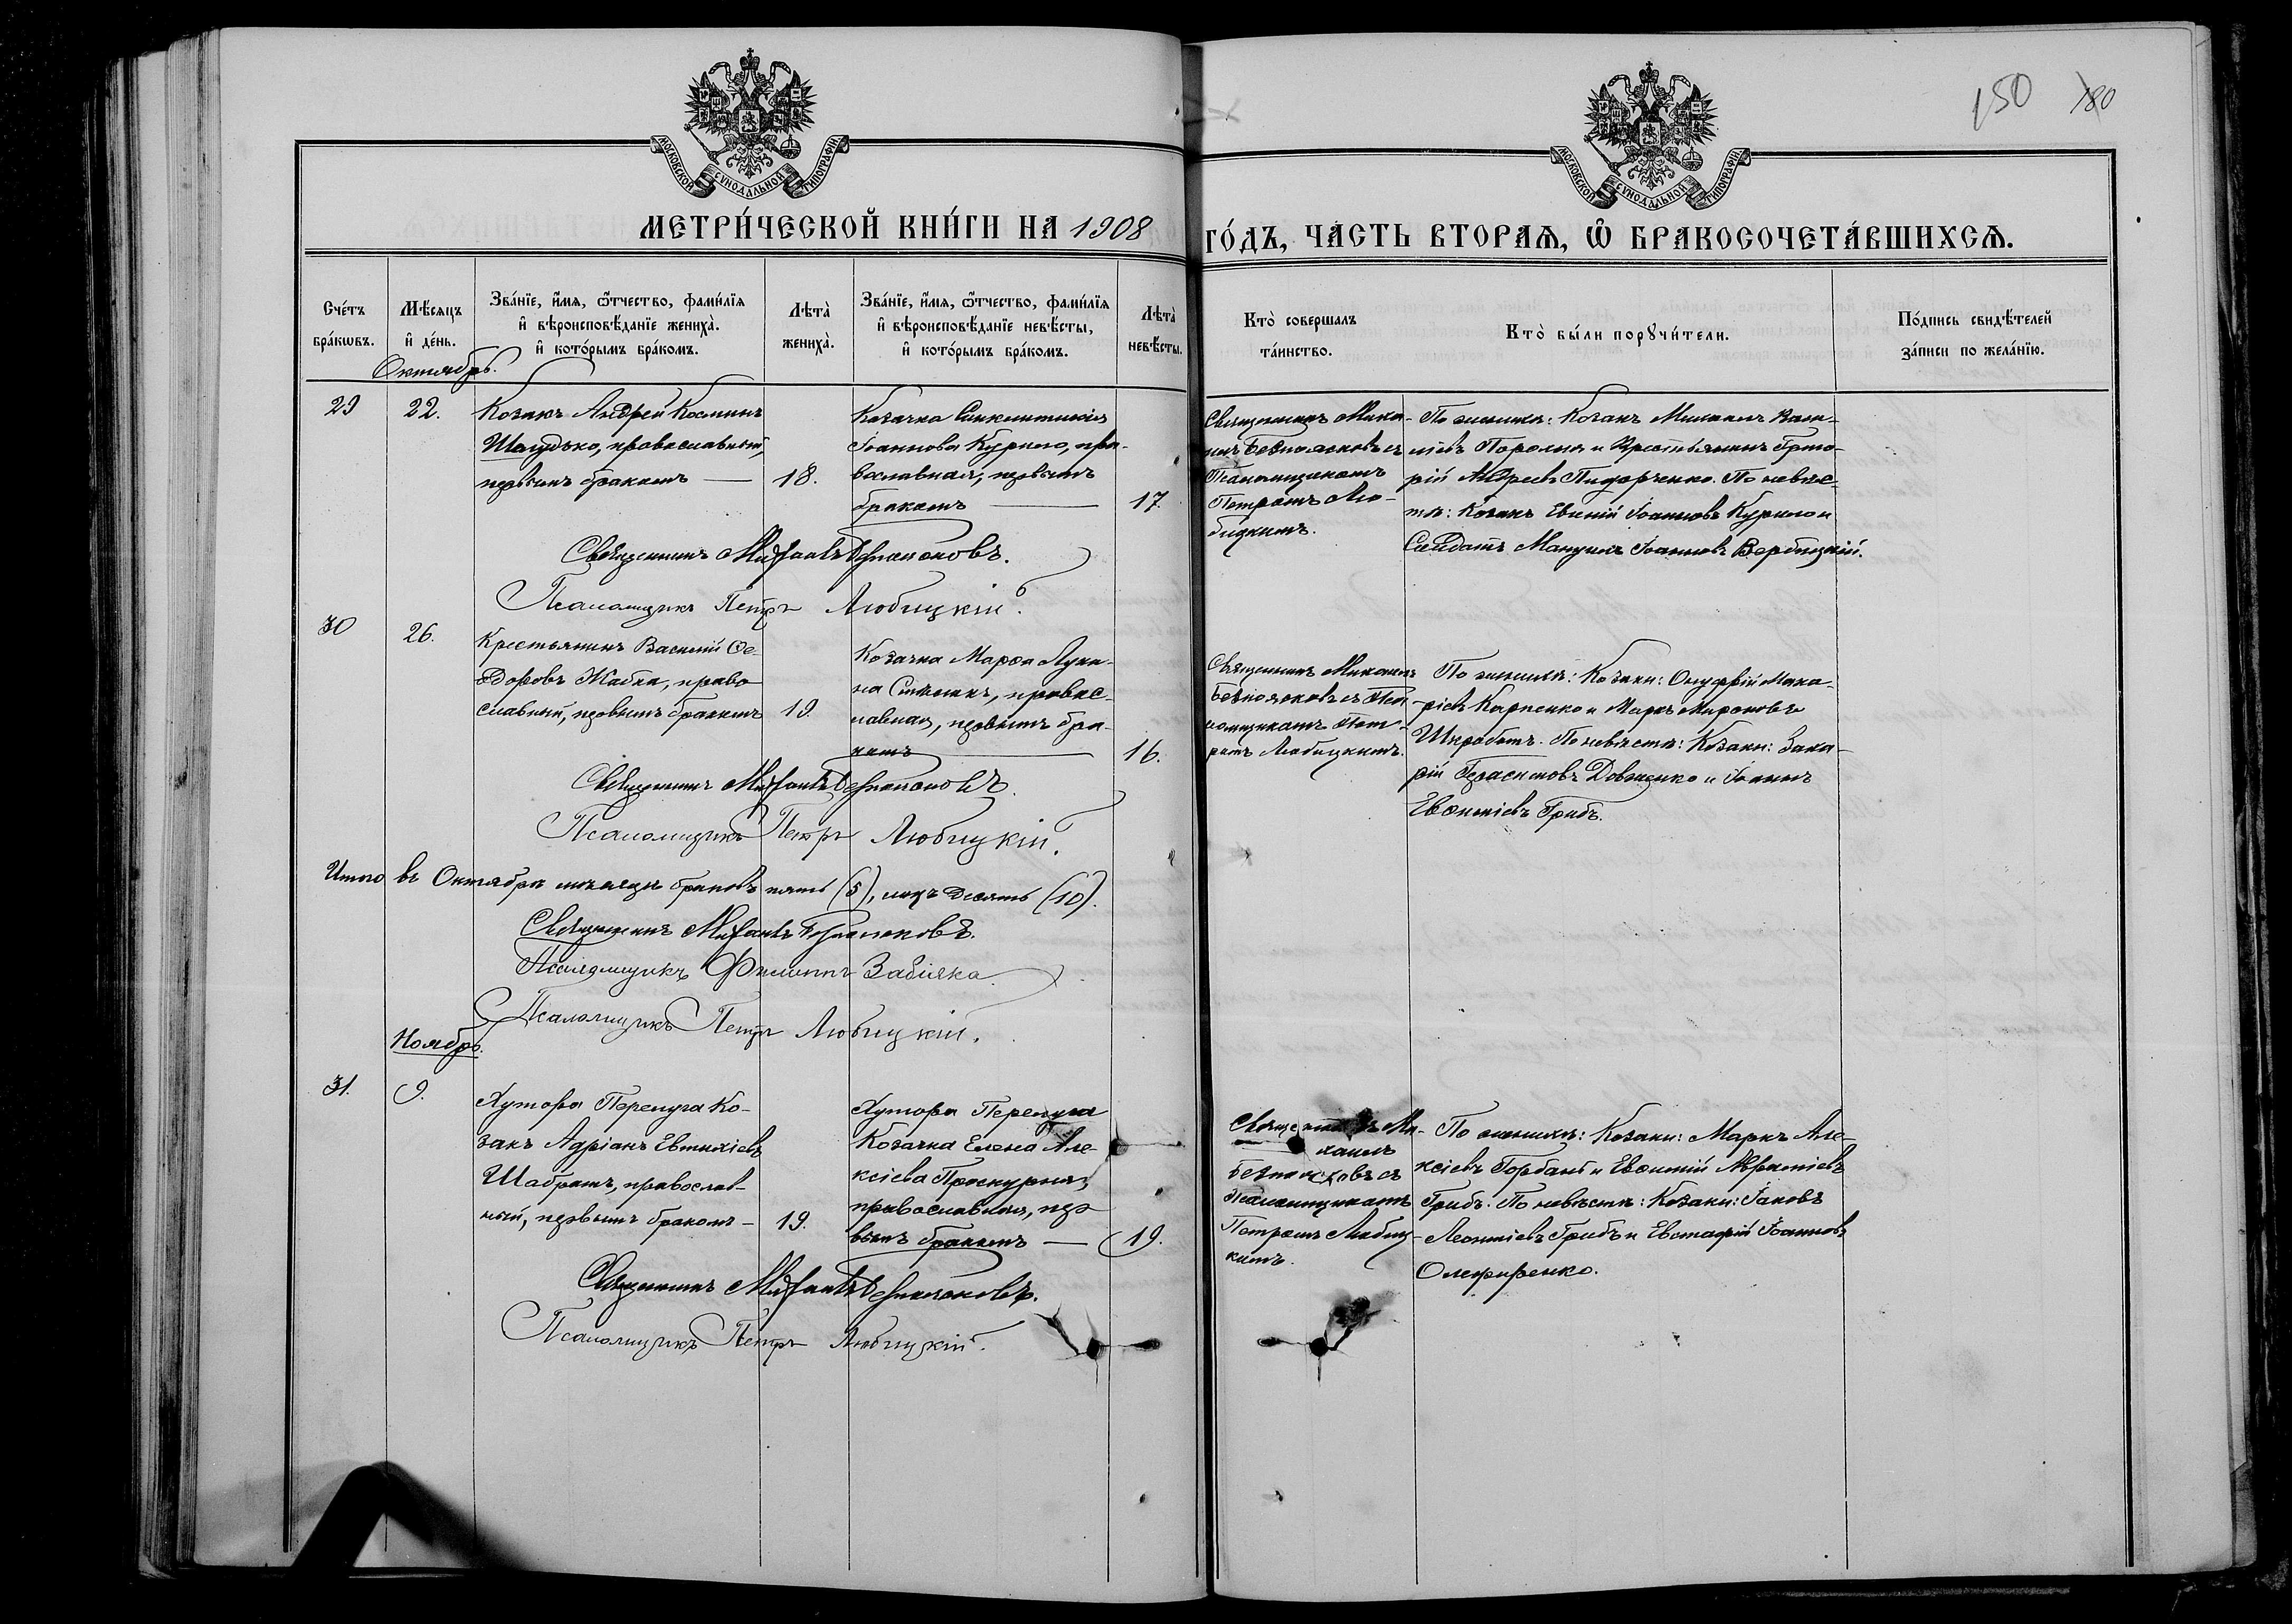 150 180
МОСКОВСКОЙ СѴНОДАЛЬНОЙ ТИПОГРАФІИ.
МОСКОВСКОЙ СѴНОДАЛЬНОЙ ТИПОГРАФІИ.
МЕТРИ́ЧЕСКОЙ КНИ́ГИ НА 1908
ГО́ДЪ, ЧА́СТЬ ВТОРАѦ, Ѽ БРАКОСОЧЕТА́ВШИХСѦ.
Сче́тъ бра́кѡвъ.
Мѣ́сяцъ и҆ де́нь.
Зва́нїе, и҆́мя, ѻ҆́тчество, фами́лїя
и҆ вѣроисповѣ́данїе жениха̀.
и҆ кото́рымъ бра́комъ.
Лѣта̀ жениха̀.
Зва́нїе, и҆́мя, ѻ҆́тчество, фами́лїя
и҆ вѣроисповѣ́данїе невѣ́сты,
и҆ кото́рымъ бра́комъ.
Лѣта̀ невѣ́сты.
Кто̀ совершалъ
та́инство.
Кто̀ бы́ли порꙋчи́тели.
По́дпись свидѣ́телей
за́писи по жела́нїю.
Октябрь.
29
22.
Козакъ Андрей Косминъ
Шаудько, православный,
первымъ бракомъ —
18.
Козачка Синклитикія
Іоаннова Курило, пра-
вославная, первымъ
бракомъ —
17.
Священникъ Миха-
илъ Безпоясковъ съ
Псаломщикомъ
Петромъ Лю-
бицкимъ.
По женихѣ: Козакъ Михаилъ
Пороля и Крестьянинъ Григо-
рій Андреевъ Пидорченко. По невѣс-
тѣ: Козакъ Евѳимій Іоанновъ Курило и
Солдатъ Мануилъ Іоанновъ Вербицкій.
Священникъ Михаилъ Безпоясковъ.
Псаломщикъ Петръ Любицкій.
30
26.
Крестьянинъ Василій Ѳе-
доровъ Жабка, право-
славный, первымъ бракомъ
19.
Козачка Марѳа Луки-
на, правос-
лавная, первымъ бра-
комъ —
16.
Священникъ Михаилъ
Безпоясковъ съ Пса-
ломщикомъ Пет-
ромъ Любицкимъ.
По женихѣ: Козаки: Онуфрій Мака-
ріевъ Карпенко и Маркъ Мироновъ
Шкработъ. По невѣстѣ: Козаки: Заха-
рій Герасимовъ Довженко и Іоаннъ
Евѳиміевъ Грибъ.
Священникъ Михаилъ Безпоясковъ.
Псаломщикъ Петръ Любицкій.
Итого въ Октябрѣ мѣсяцѣ браковъ пять (5), лицъ десять (10).
Священникъ Михаилъ Безпоясковъ.
Псаломщикъ Филиппъ Забіяка.
Псаломщикъ Петръ Любицкій.
Ноябрь.
31.
9.
Хутора Перепуга Ко-
закъ Адріанъ Евтихіевъ
Шабратъ, православ-
ный, первымъ бракомъ —
19.
Хутора Перепуга
Козачка Елена Але-
ксіева Проскурня,
православная, пер-
вымъ бракомъ —
19.
Священникъ Ми-
хаилъ
Безпоясковъ съ
Псаломщикомъ
Петромъ Любиц-
кимъ.
По женихѣ: Козаки: Маркъ Але-
ксіевъ Горбань и Евѳимій Авраміевъ
Грибъ. По невѣстѣ: Козаки: Іаковъ
Леонтіевъ Грибъ и Евстафій Іоанновъ
Олефиренко.
Священникъ Михаилъ Безпоясковъ.
Псаломщикъ Петръ Любицкій.